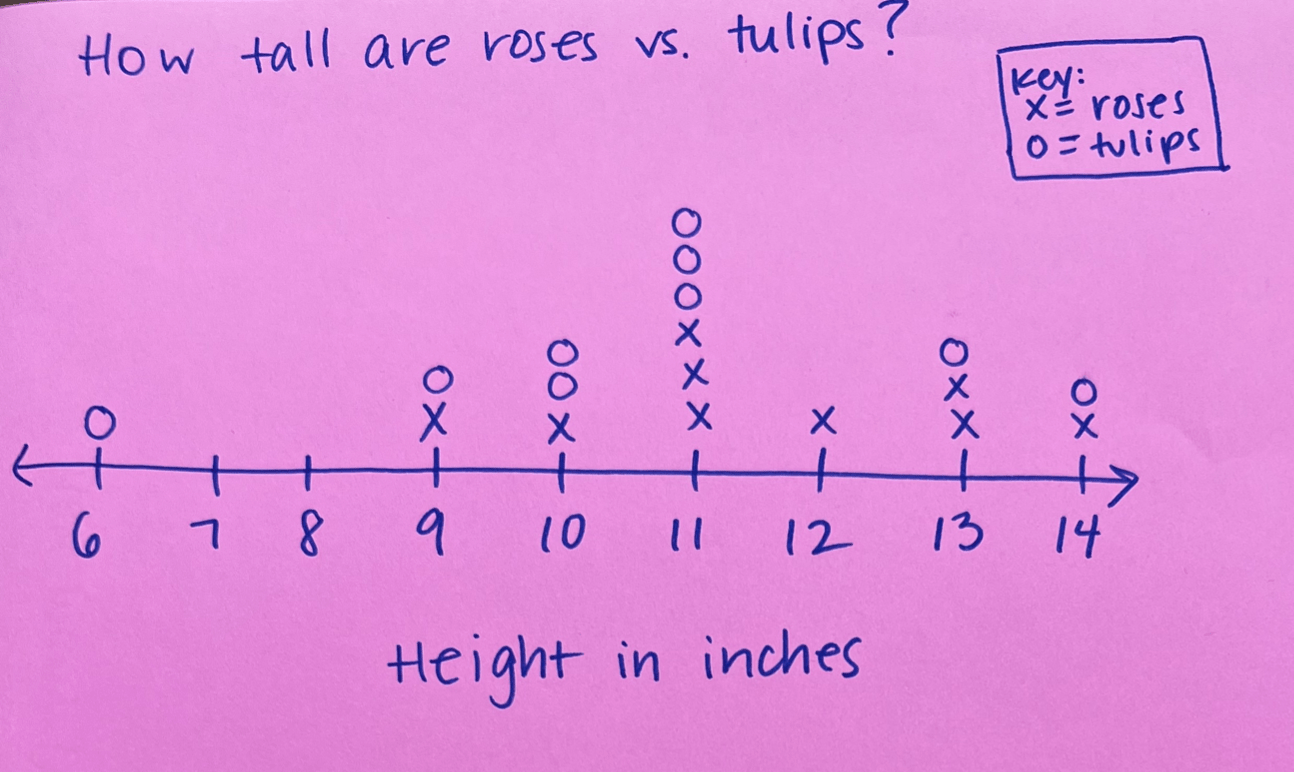 How tall are roses vs. tulips?
Key:
x = roses
o = tulips
O
O
O
O O X O
O O X X X O
O X X X X X X
6 7 8 9 10 11 12 13 14
Height in inches